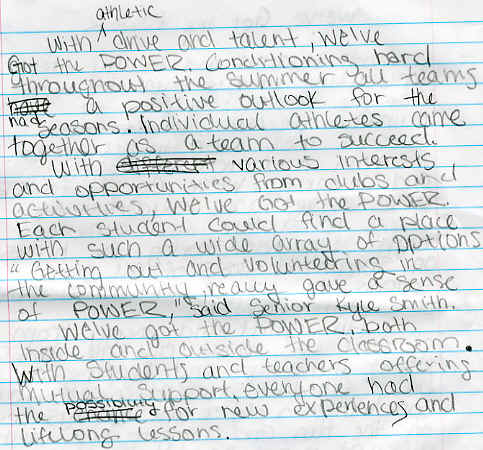 athletic
With ^ drive and talent, we've
Got the POWER. Conditioning hard
throughout the summer all teams
have a positive outlook for the
had
seasons. Individual athletes came
together as a team to succeed.
With different various interests
and opportunities from clubs and
activities, we've Got the POWER.
Each student could find a place
with such a wide array of options
"Getting out and volunteering in
the community really gave a sense
of POWER," said senior Kyle Smith.
We've got the POWER, both
inside and outside the classroom.
With students and teachers offering
mutual support, everyone had
possibility
the chance for new experiences and
lifelong lessons.